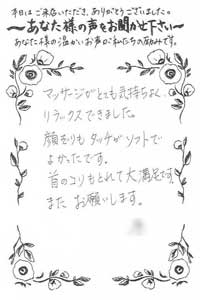 本日はご来店いただき、ありがとうございました。
～あなた様の声をお聞かせ下さい～
あなた様の温かいお声が私たちの励みです。
マッサージがとても気持ちよく、
リラックスできました。
顔そりもタッチがソフトで
よかったです。
首のコリもとれて大満足です。
また お願いします。